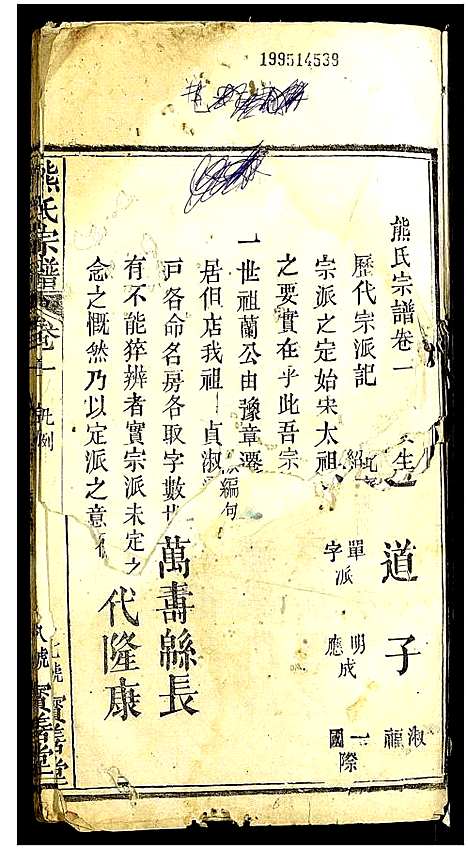 199514539
熊氏宗譜卷一
歷代宗派記
宗派之定始宋太祖
之要實在乎此吾宗
一世祖蘭公由豫章遷
居但店我祖 貞淑
戸各命名房各取字數世
有不能猝辨者實宗派未定之
念之慨然乃以定派之意
編句
生
道子
淑 龍
單派 明成 一際
字 應 國
萬壽緜長
代隆康
熊氏宗譜 卷一 凡例
號 寶善堂
號 寶善堂